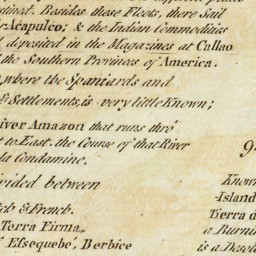 Besides these Fleets, there Sail
Acapulco; & the Indian Commodities
deposited in the Magazines at Callao
the Southern Provinces of America.
where the Spaniards and
& Settlements, is very little Known;
iver Amazon that runs thro'
to East. the Course of that River
la Condamine.
vided between
& French.
Terra Firma.
Essequebé, Berbice
9
Known
Island
Tierra d
a Burnin
is a Desol